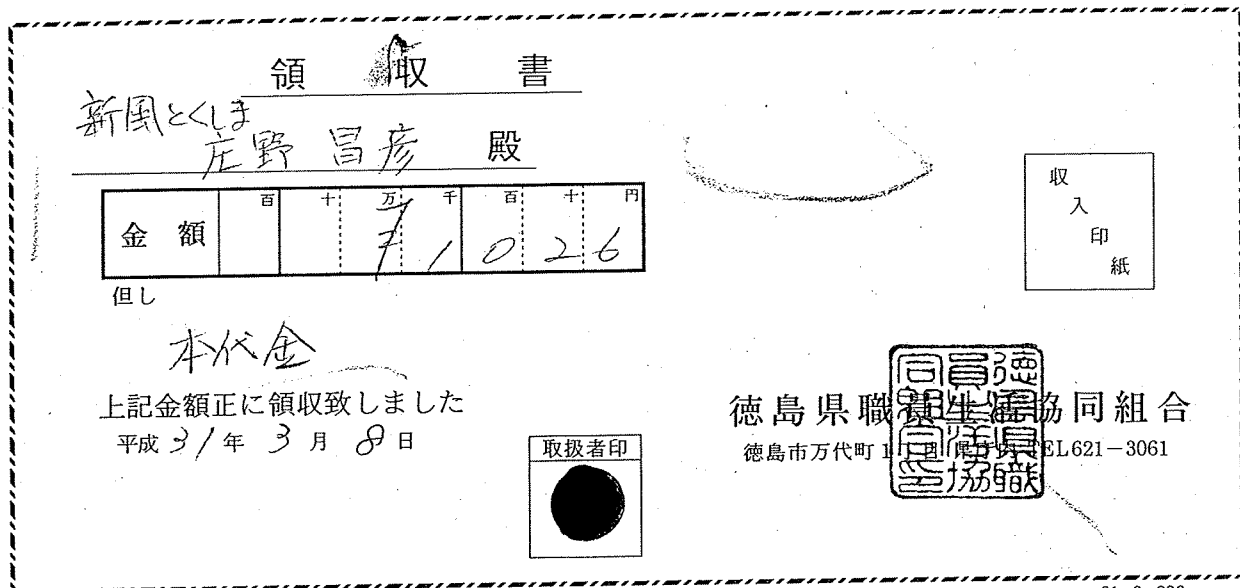 領収書
新風とくしま
庄野昌彦 殿
金額 百 十 万 千 百 十 円
1026
但し
本代金
上記金額正に領収致しました
平成31年3月8日
取扱者印
収入印紙
徳島県職員生活協同組合
徳島市万代町1丁目1県庁内TEL621-3061